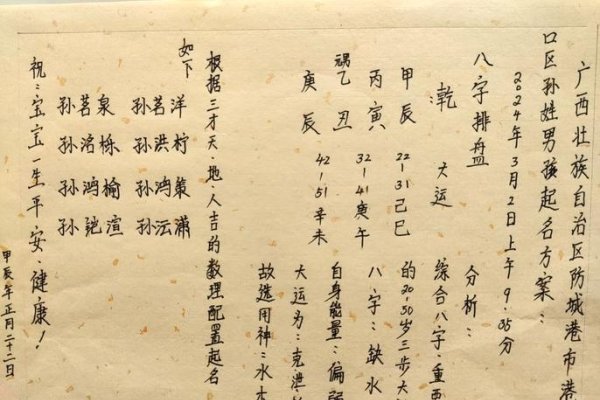 广西壮族自治区防城港市港
口区孙姓男孩起名方案：
2024年3月2日上午9.35分
八字排盘
乾 大运
甲辰 22—31己巳
丙寅 32—41庚午
乙丑
庚辰 42—51辛未
分析：
综合八字、重
的20-50岁三步大
八字：缺水
自身能量：偏弱
大运为：克泄
故选用神：水木
根据三才天、地、人吉的数理配置起名
如下
孙茗洋
孙洪柠
孙鸿策
孙沄潇
孙茗泉
孙洺栎
孙鸿榆
孙铠渲
祝：宝宝一生平安、健康！
甲辰年正月二十二日